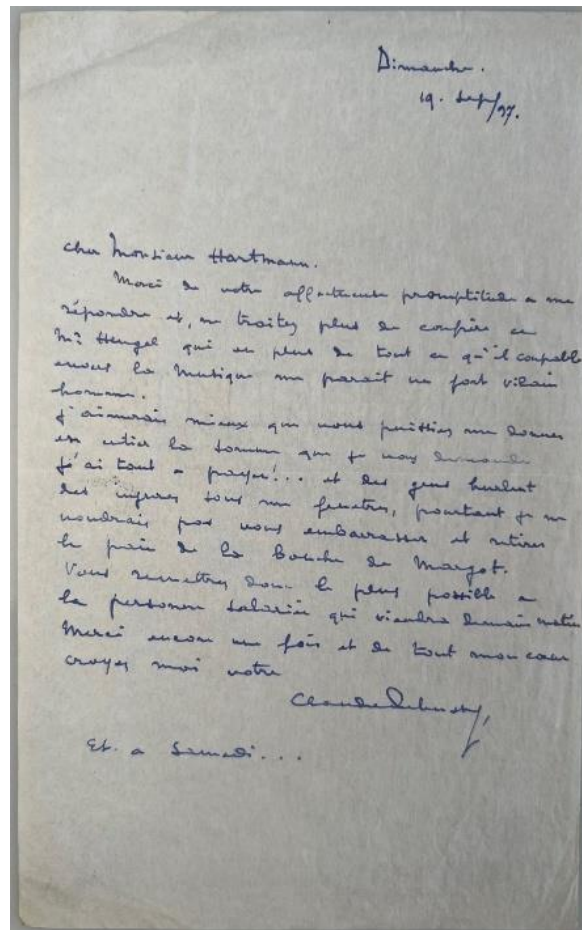 Dimanche.
19. Sept/97.
cher Monsieur Hartmann.
Merci de votre affectueuse promptitude a me
répondre et, ne traitez plus de confrère ce
Mr. Heugel qui en plus de tout ce qu'il coupable
envers la Musique me parait un fort vilain
homme.
J'aimerais mieux que vous puissiez me donner
en entier la somme que je vous demande
j'ai tout a payer!... et des gens hurlent
des injures sous mes fenetres, pourtant je ne
voudrais pas vous embarrasser et retirer
le pain de la Bouche de Margot.
Vous remettrez donc le plus possible a
la personne salariée qui viendra demain matin
Merci encore une fois et de tout mon cœur
croyez moi votre
Claude Debussy,
Et. a Samedi...